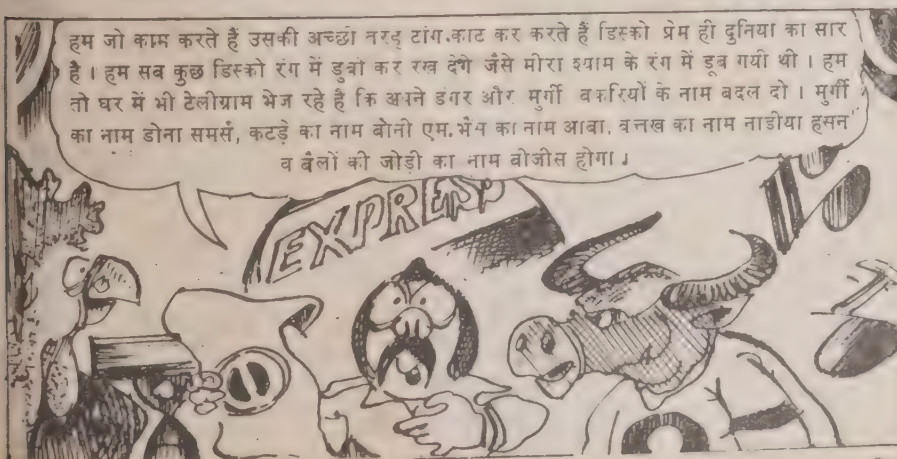 हम जो काम करते हैं उसकी अच्छी तरह टांग.काट कर करते हैं डिस्को प्रेम ही दुनिया का सार
है । हम सब कुछ डिस्को रंग में डुबो कर रख देंगे जैसे मीरा श्याम के रंग में डूब गयी थी । हम
तो घर में भी टेलीग्राम भेज रहे है कि अपने डंगर और मुर्गी बकरियों के नाम बदल दो । मुर्गी
का नाम डोना समर्स, कटड़े का नाम बोनी एम. भैंस का नाम आबा, बत्तख का नाम नाडीया हसन
व बैलों की जोड़ी का नाम बोजीस होगा ।
EXPRESS